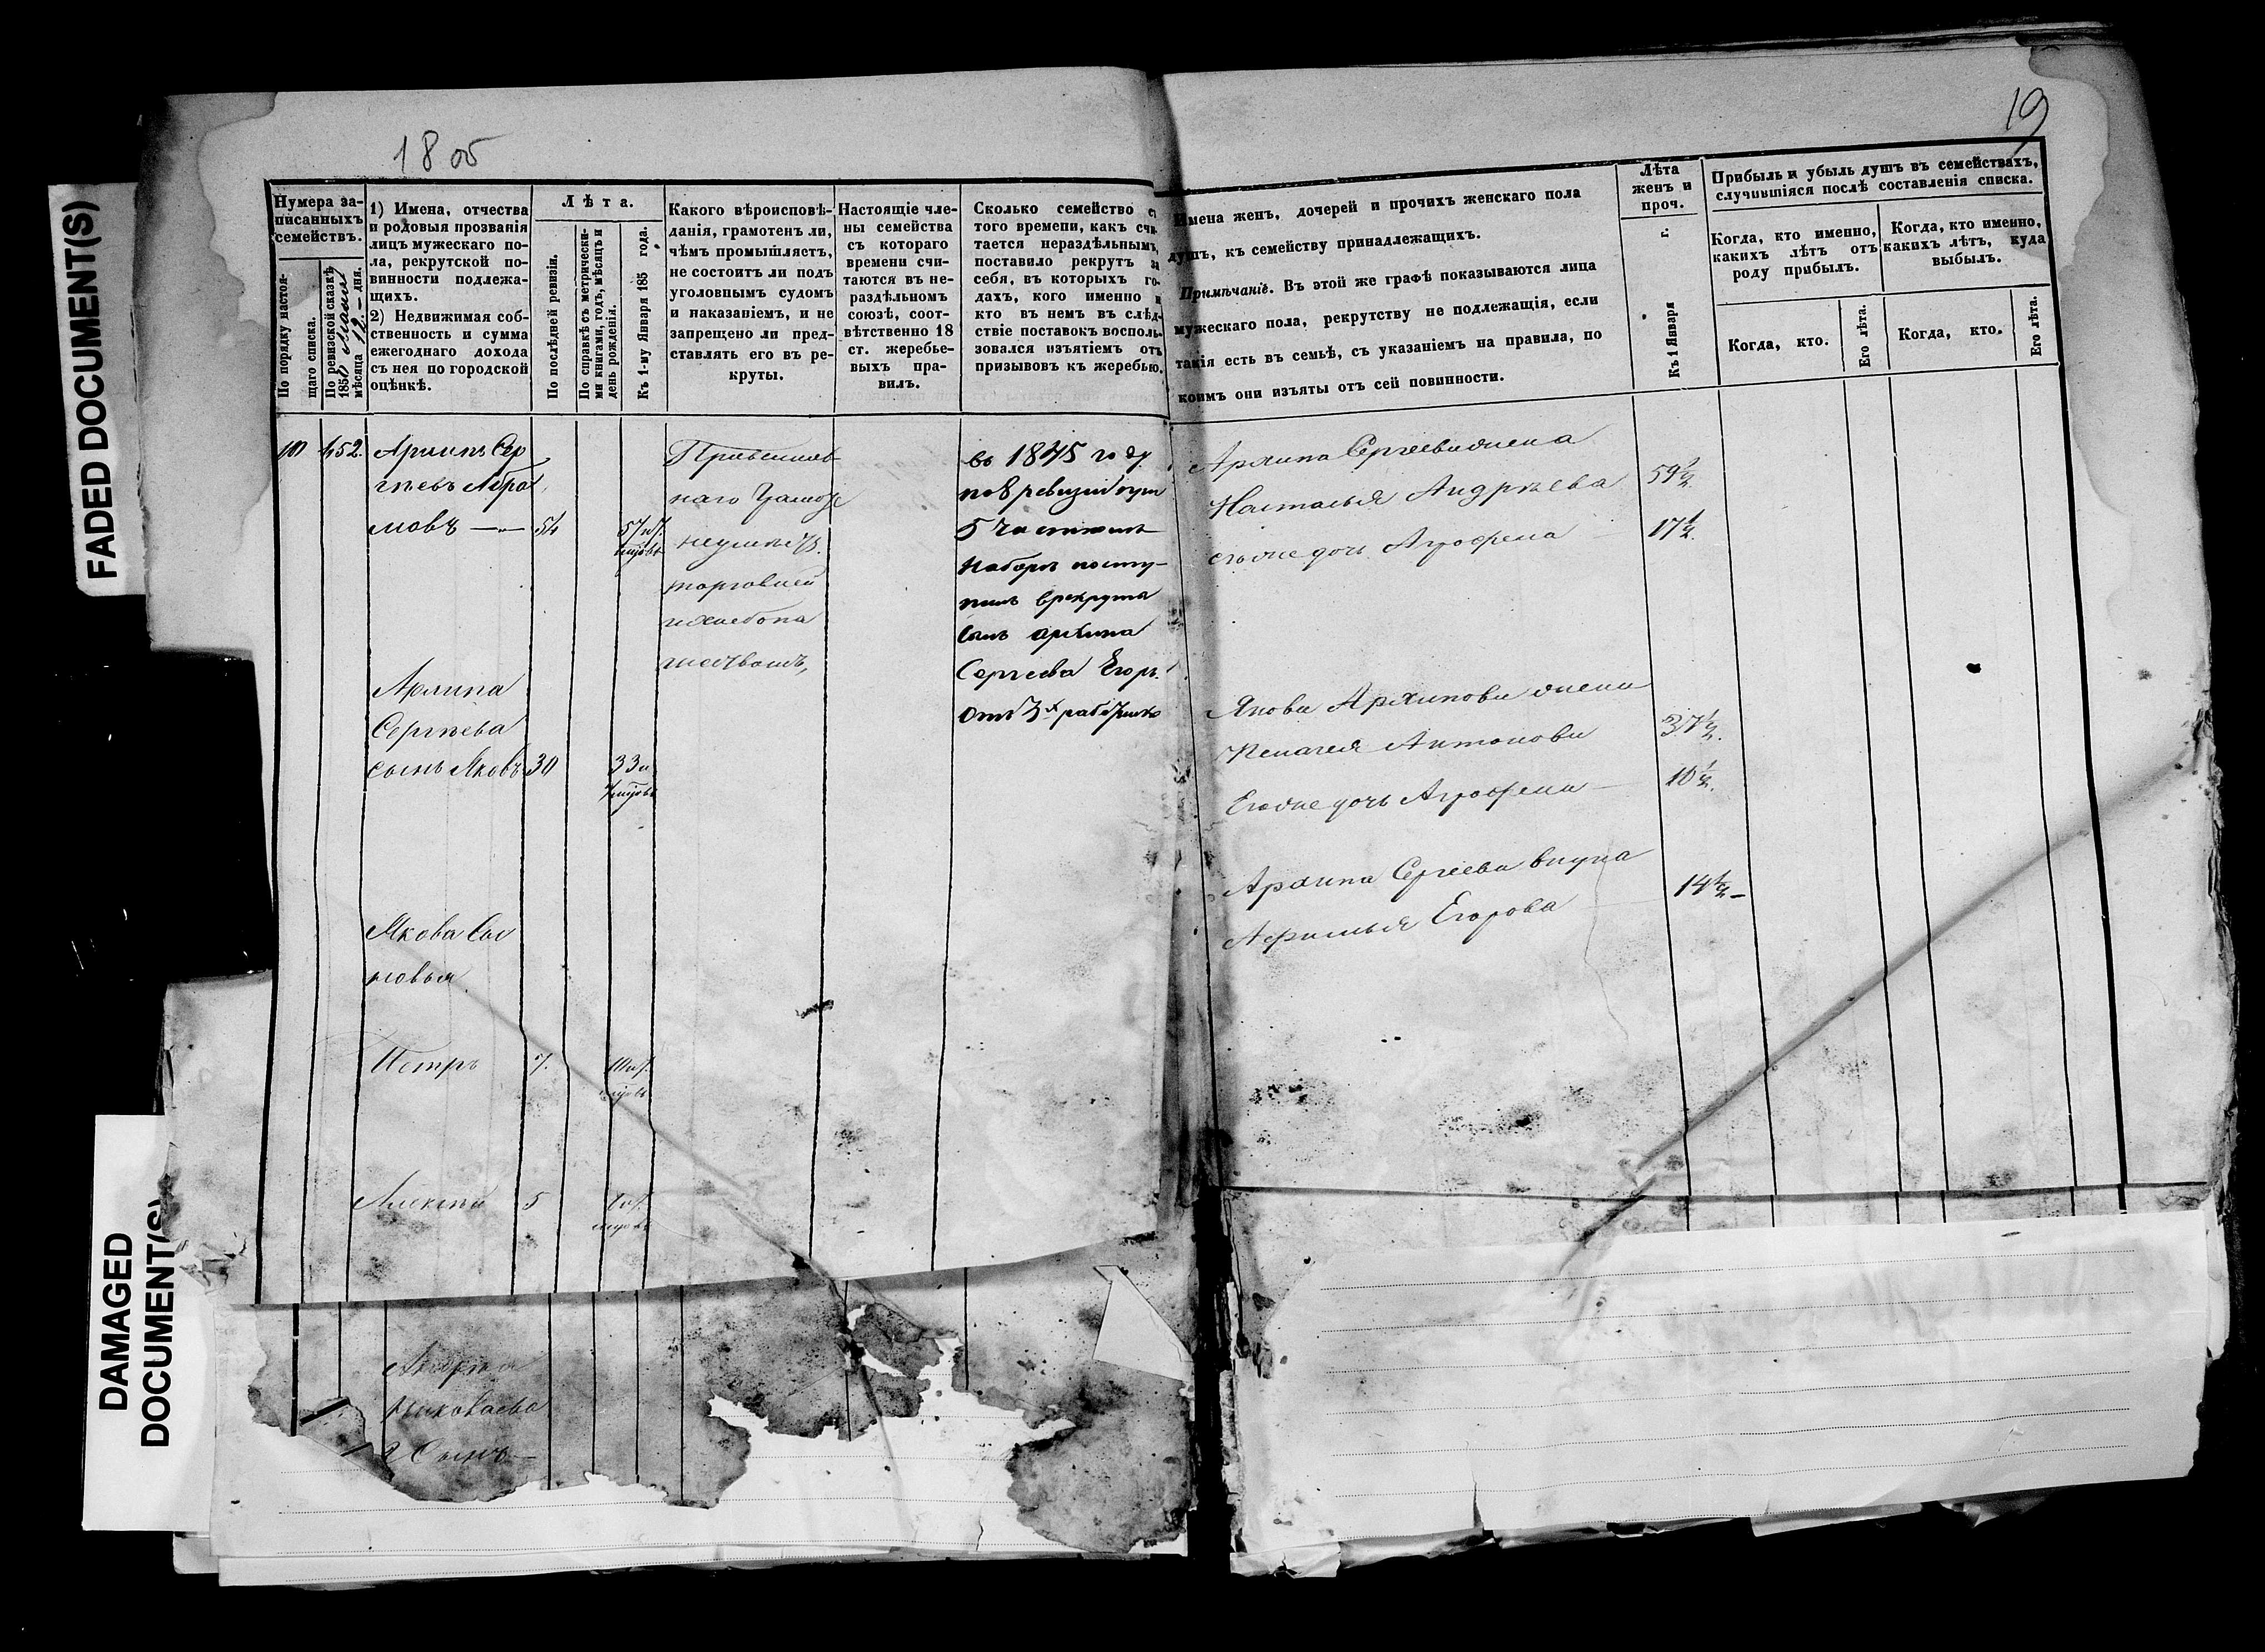 FADED DOCUMENT(S)
DAMAGED
DOCUMENT(S)
18 об
19
Нумера за-
писанныхъ
семействъ.
По порядку настоя-
щаго списка.
По ревизской сказкѣ
1850
мѣсяца 12 дня.
1) Имена, отчества
и родовыя прозванія
лицъ мужескаго по-
ла, рекрутской по-
винности подлежа-
щихъ.
2) Недвижимая соб-
ственность и сумма
ежегоднаго дохода
съ нея по городской
оцѣнкѣ.
Лѣта.
По послѣдней ревизіи.
По справкѣ съ метрически-
ми книгами, годъ, мѣсяцъ и
день рожденія.
Къ 1-му Января 185 года.
Какого вѣроисповѣ-
данія, грамотенъ ли,
чѣмъ промышляетъ,
не состоитъ ли подъ
уголовнымъ судомъ
и наказаніемъ, и не
запрещено ли пред-
ставлять его въ ре-
круты.
Настоящіе чле-
ны семейства
съ котораго
времени счи-
таются въ не-
раздѣльномъ
союзѣ, соот-
вѣтственно 18
ст. жеребье-
выхъ пра-
вилъ.
Сколько семейство с
того времени, какъ счи-
тается нераздѣльнымъ,
поставило рекрутъ за
себя, въ которыхъ го-
дахъ, кого именно и
кто въ немъ въ слѣд-
ствіе поставокъ восполь-
зовался изъятіемъ отъ
призывовъ къ жеребью.
Имена женъ, дочерей и прочихъ женскаго пола
душъ, къ семейству принадлежащихъ.
Примѣчаніе. Въ этой же графѣ показываются лица
мужескаго пола, рекрутству не подлежащія, если
такія есть въ семьѣ, съ указаніемъ на правила, по
коимъ они изъяты отъ сей повинности.
Лѣта
женъ и
проч.
Къ 1 Января г.
Прибыль и убыль душъ въ семействахъ,
случившіяся послѣ составленія списка.
Когда, кто именно,
какихъ лѣтъ отъ
роду прибылъ.
Когда, кто именно,
какихъ лѣтъ, куда
выбылъ.
Когда, кто.
Его лѣта.
Когда, кто.
Его лѣта.
10 452. Архипъ Сер
гѣевъ Абра
мовъ 54 57 и 7.
торговлей
въ 1845 году
по 8 ревизіи
5 частномъ
наборѣ посту-
пилъ в рекрута
сынъ Архипа
Сергеева Егоръ
Архипа
Сергѣева
сынъ Яковъ 30 33 и
Якова Сы
новья
Петръ 7. 10 и 7.
Алексѣй 5
Андрѣя
Николаева
Сынъ
Архипа Сергеева жена
Наталья Андрѣева 59 ½
его же дочь Агрофена 17 ½
Якова Архипова жена
Пелагея Антонова 37 ½.
Его же дочь Агрофена 10 ½.
Архипа Сергеева внука
Афимья Егорова 14 ½